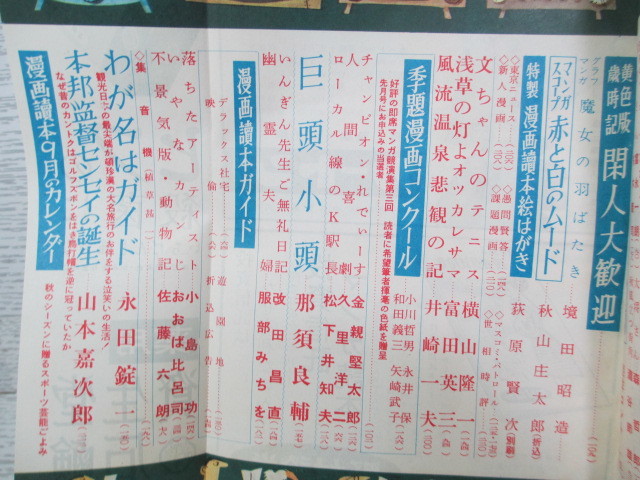 黄色版
歳時記
閑人大歓迎
グラフ
マンガ
魔女の羽ばたき
境田昭造
マンガ
スコープ
赤と白のムード
秋山庄太郎
(折込)
特製
漫画讀本絵はがき
荻原賢次
(別刷)
◇東京ニュース
◇愚問賢答
◇マスコミ・パトロール
◇新人漫画
◇課題漫画
◇世相時評
文ちゃんのテニス
横山隆一
浅草の灯よオツカレサマ
富田英三
風流温泉悲観の記
井崎一夫
季題漫画コンクール
小川哲男
永井保
和田義三
矢崎武子
好評の即席マンガ競演集第三回
読者に希望筆者揮毫の色紙を贈呈
先月号にお申込みの当選者
チャンピオン・れでぃーす
金親堅太郎
人間喜劇
久里洋二
ローカル線のK駅長
松下井知夫
巨頭小頭
那須良輔
いんぎん先生ご無礼日記
改田昌直
幽霊夫婦
服部みちを
漫画讀本ガイド
デラックス社宅
遊園地
映倫
折込広告
落ちたアーティスト
小島功
いやなカンじ
おおば比呂司
不景気版・動物記
佐藤六朗
◇集音機
(植草甚一)
わが名はガイド
永田錠一
観光日本の最尖端が頓珍漢の大名旅行のお伴をする泣笑いの生活!
本邦監督センセイの誕生
山本嘉次郎
なぜ昔のカントクはゴルフズボンをはき鳥打帽を逆に冠っていたか
漫画讀本9月のカレンダー
秋のシーズンに贈るスポーツ芸能ごよみ